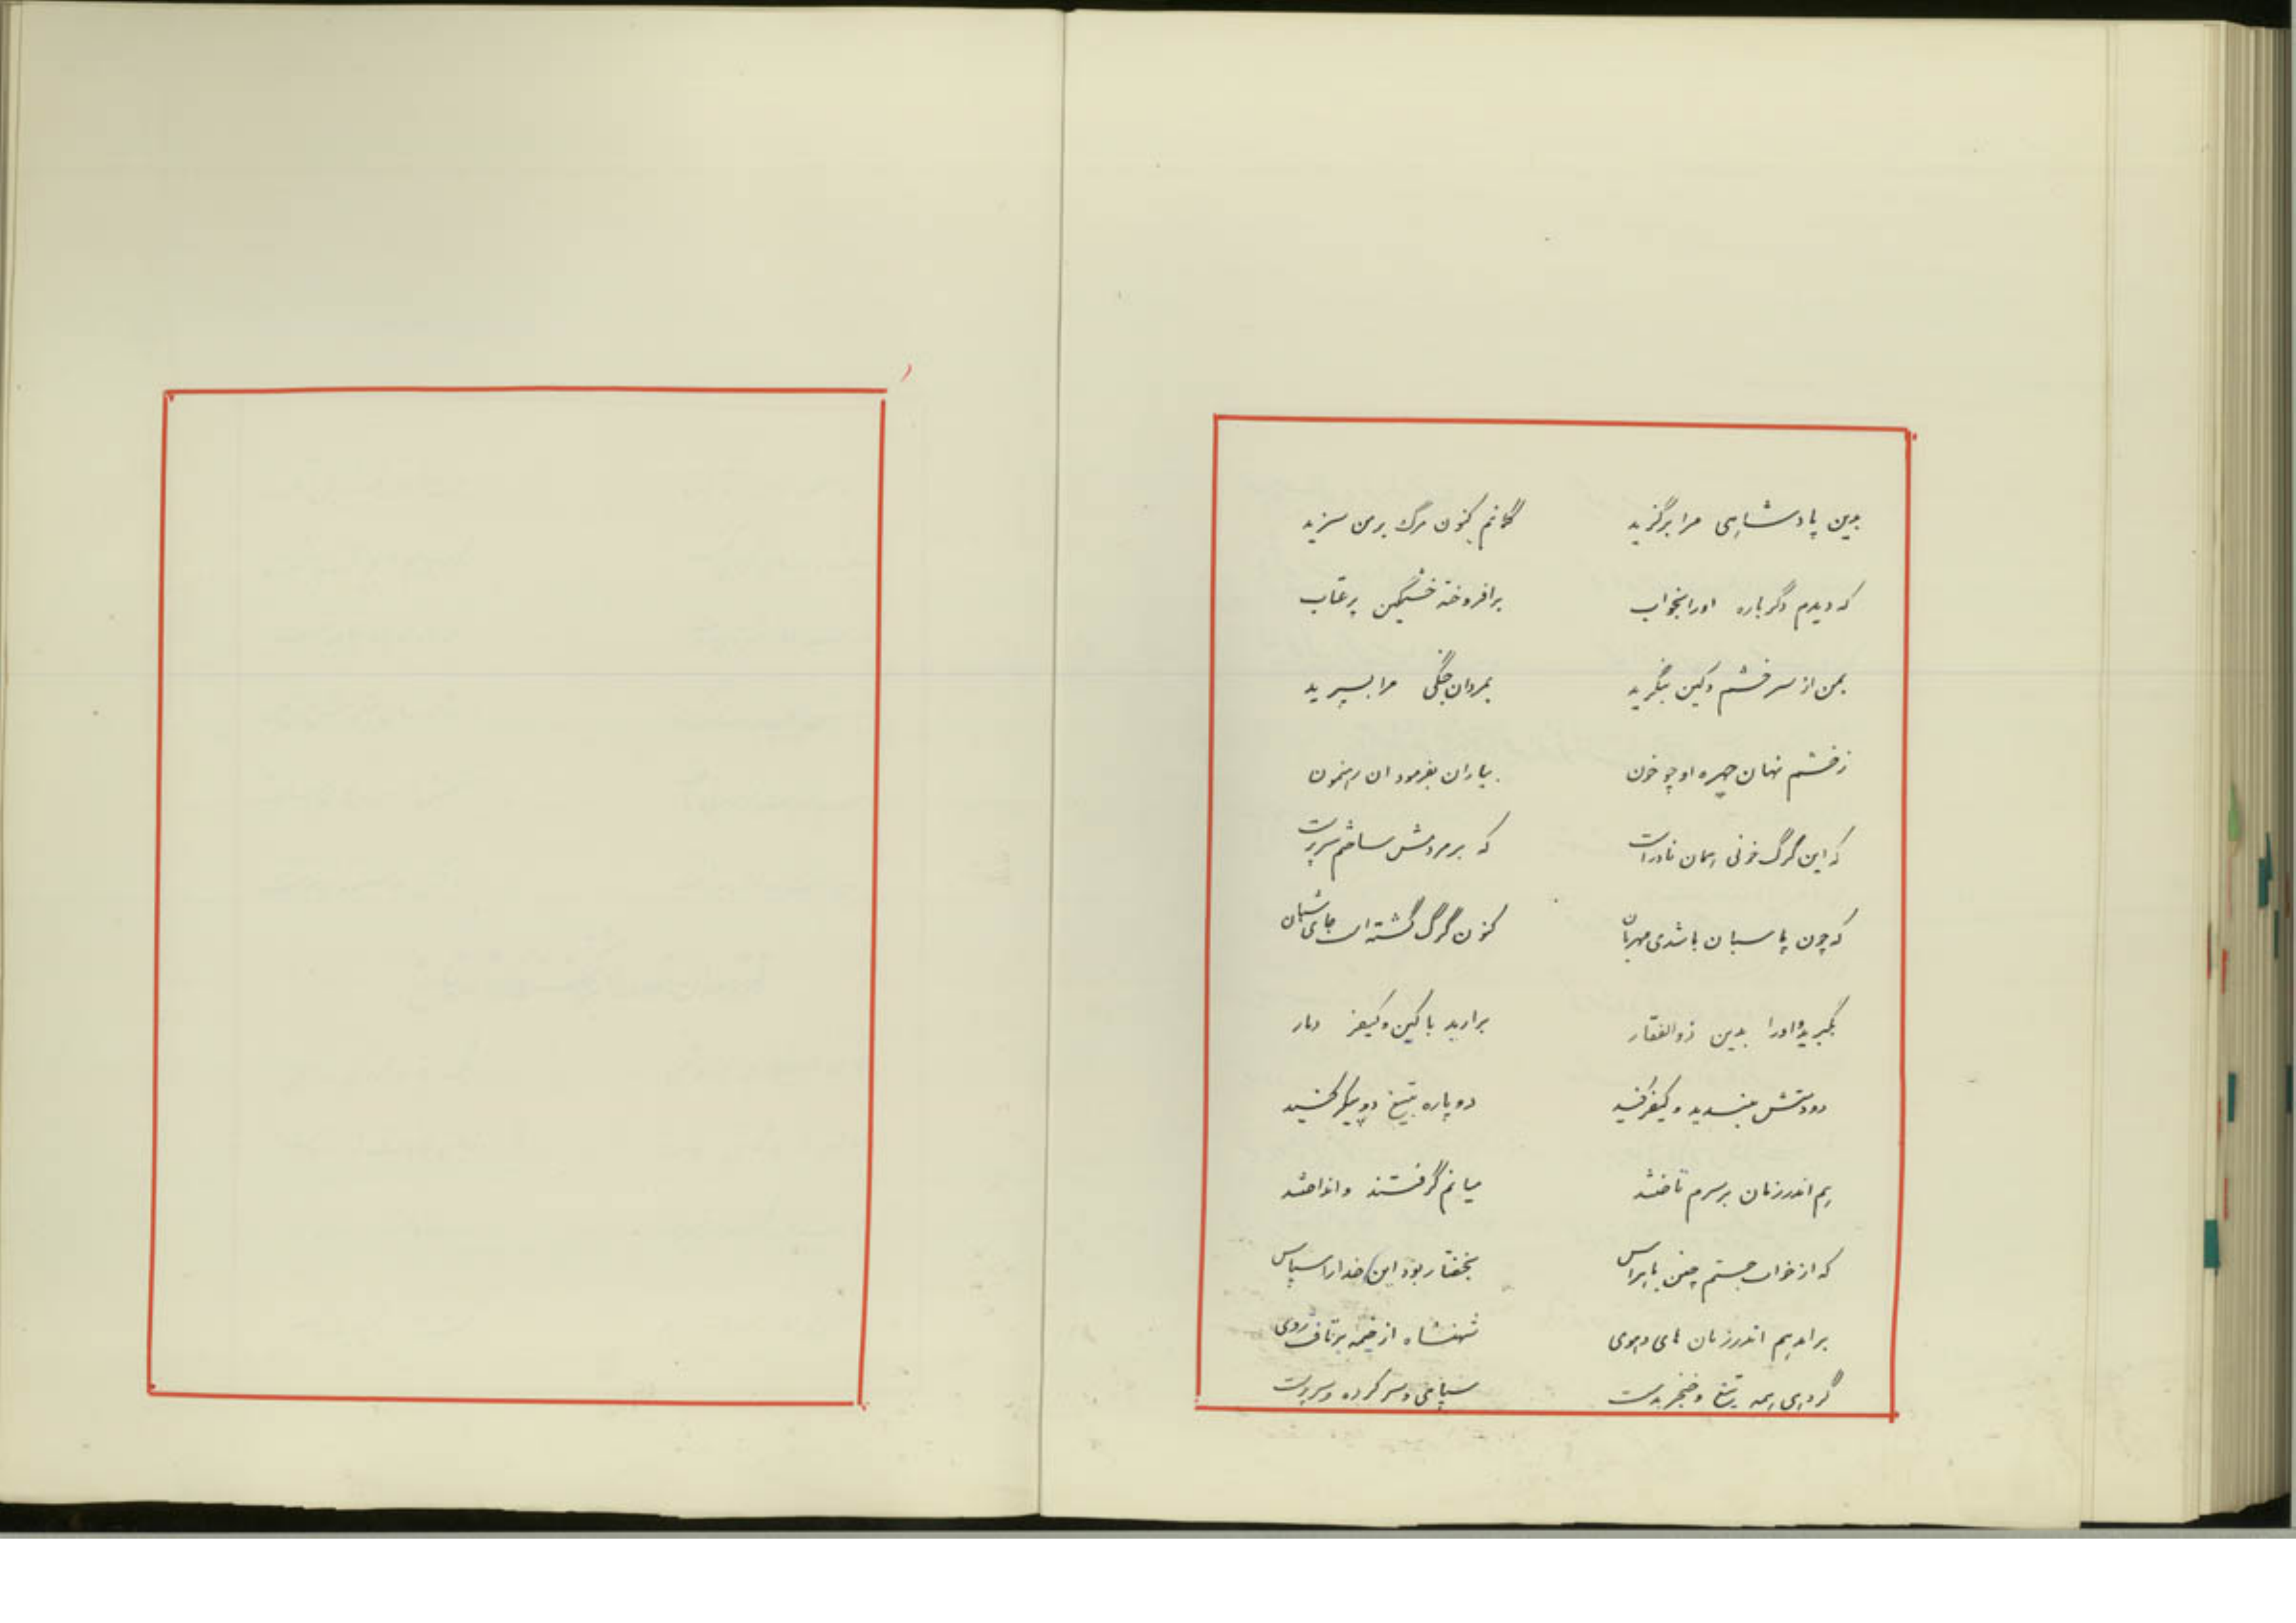 بدین پادشاهی مرا برگزید گمانم کنون مرگ بر من سزید
که دیدم دگرباره اورا بخواب برافروخته خشمگین پرعتاب
بمن از سر خشم و کین بنگرید بمردان جنگی مرا بسپرید
ز خشم نهان چهره او چو خون بیاران بفرمود ان رهنمون
که این گرگ خونی همان نادرست که بر مردمش ساختم سرپرست
که چون پاسبان باشدی مهربان کنون گرگ گشته است جای شبان
بگیرید اورا بدین ذوالفقار برارید با کین و کیفر دمار
دودستش ببندید و کیفر کنید دوپاره بتیغ دوپیکر کنید
هم اندر زمان بر سرم تاختند میانم گرفتند و انداختند
که از خواب جستم چنین با هراس بخفتار بود این خدارا سپاس
برامد هم اندر زمان های و هوی شهنشاه از خیمه برتافت روی
گروهی همه تیغ و خنجر بدست سپاهی و سرکرده و سرپرست